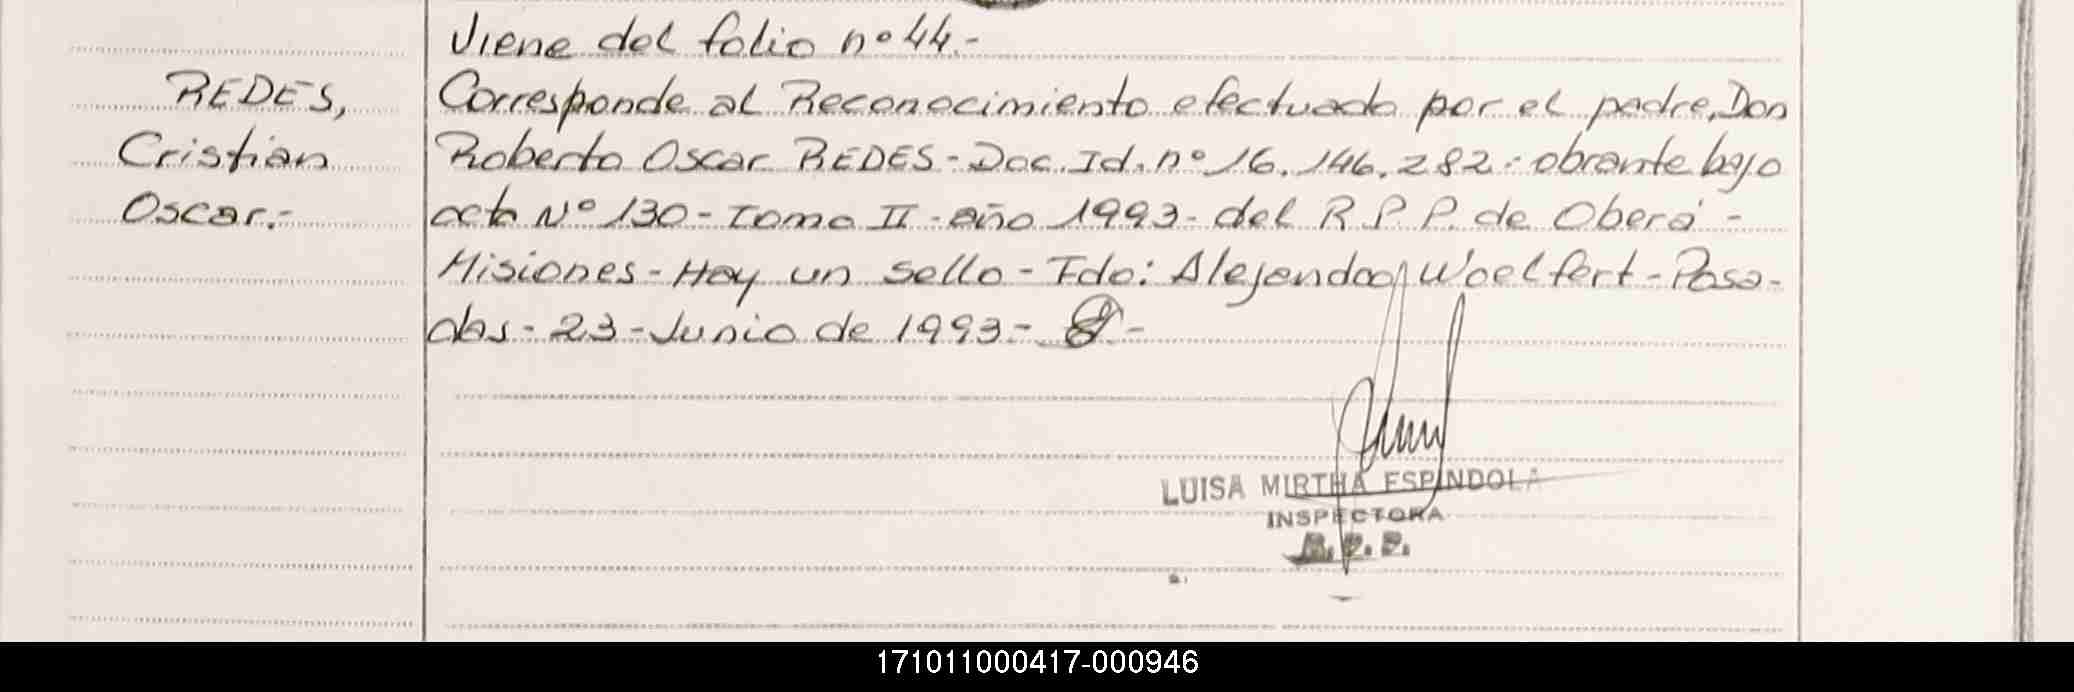 Viene del folio nº 44.-
REDES,
Cristian
Oscar.-
Corresponde al Reconocimiento efectuado por el padre, Don
Roberto Oscar REDES - Doc. Id. nº 16.146.282 - obrante bajo
acta Nº 130 - Tomo II - año 1993 - del R. P. P. de Oberá -
Misiones - Hay un sello - Fdo: Alejandro Woelfert - Posa-
das - 23 - Junio de 1993 -
LUISA MIRTHA ESPINDOLA
INSPECTORA
R. P. P.
171011000417-000946